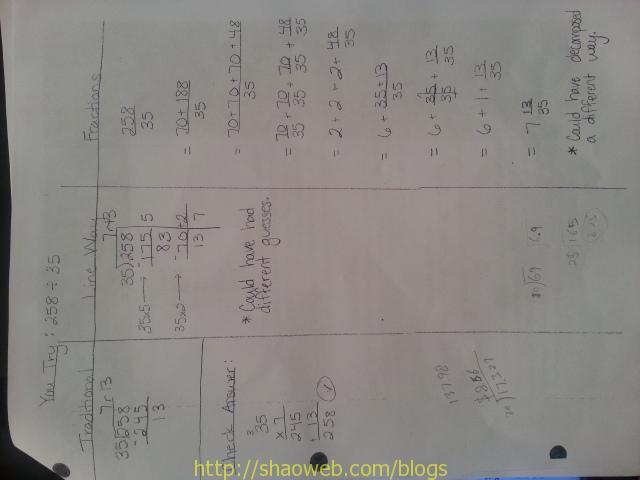 You Try: 258 ÷ 35
Traditional
7 r 13
35)258
-245
13
Check Answer:
3
35
x 7
245
+ 13
258
Line Way
7r13
35)258
35x5 → -175 5
83
35x2 → -70 +2
13 7
* Could have had
different guesses.
Fractions
258
35
= 70 + 188
35
= 70 + 70 + 70 + 48
35
= 70 + 70 + 70 + 48
35 35 35 35
= 2 + 2 + 2 + 48
35
= 6 + 35 + 13
35
= 6 + 35 + 13
35 35
= 6 + 1 + 13
35
= 7 13
35
* Could have decomposed
a different way.
http://shaoweb.com/blogs